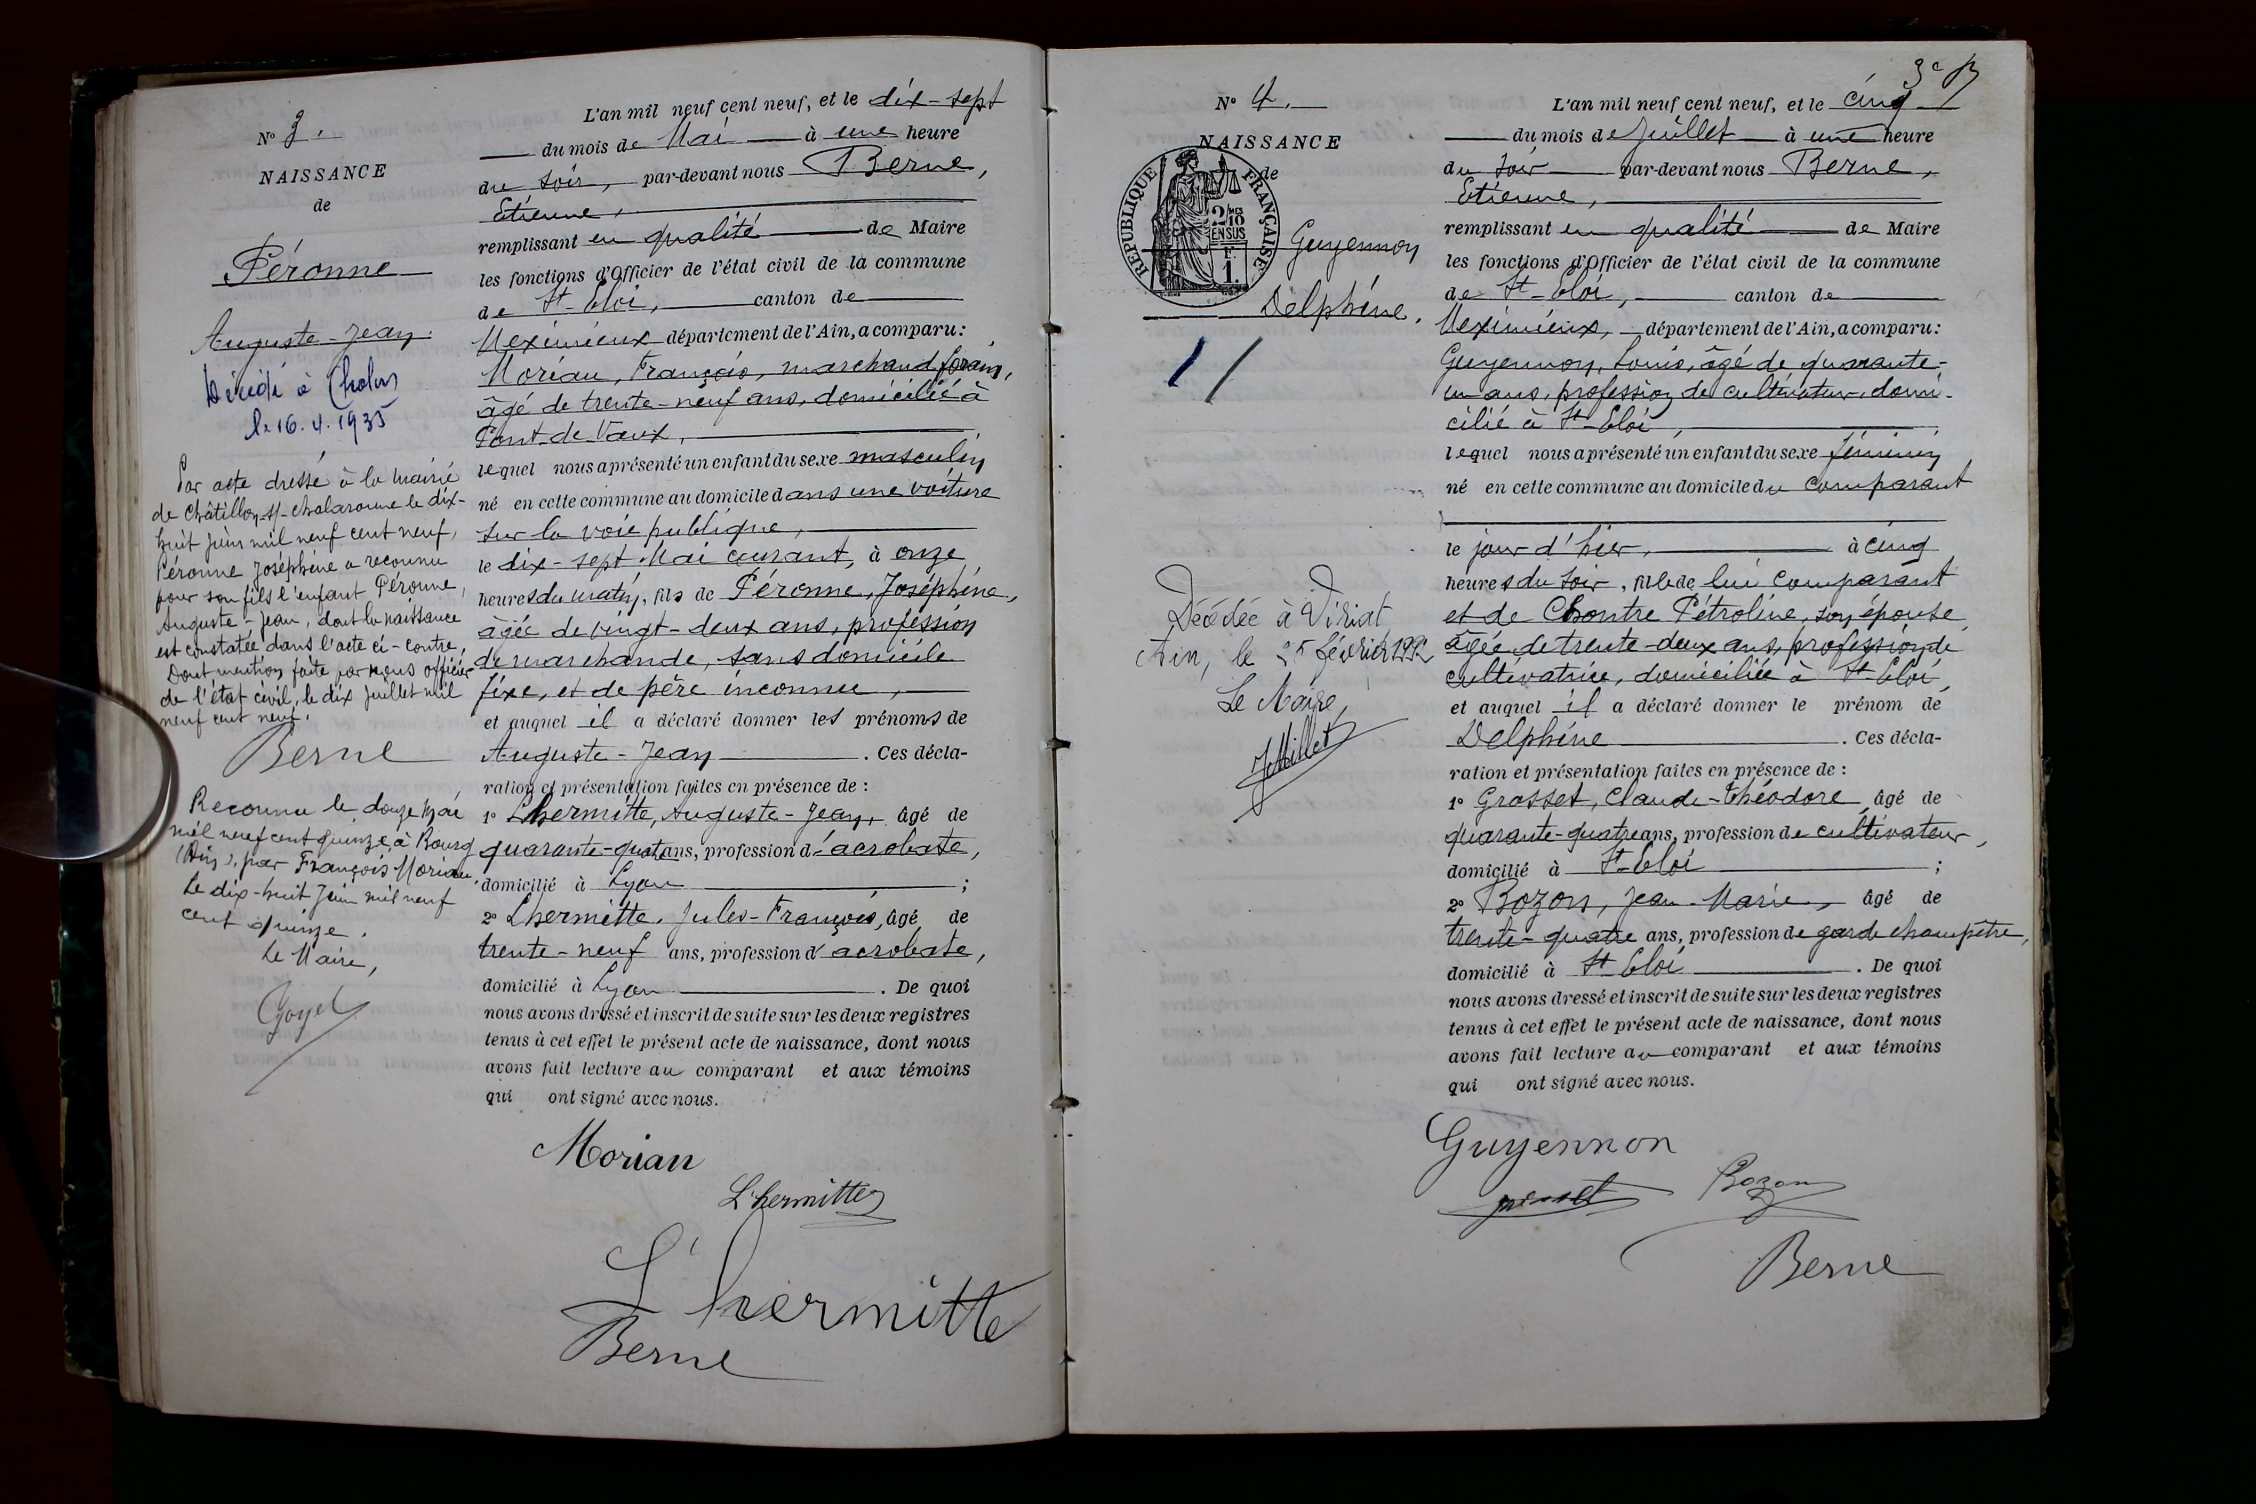 N° 3.
NAISSANCE
de
Péronne
Auguste-Jean
Décédé à Chalon
le 16.4.1935
Par acte dressé à la mairie
de Châtillon-s/-Chalaronne le dix-
huit juin mil neuf cent neuf,
Péronne Joséphine a reconnu
pour son fils l'enfant Péronne,
Auguste-Jean, dont la naissance
est constatée dans l'acte ci-contre,
Dont mention faite par nous officier
de l'état civil, le dix juillet mil
neuf cent neuf.
Berne
Reconnu le douze mai
mil neuf cent quinze, à Bourg
(Ain), par François Morian.
Le dix-huit Juin mil neuf
cent quinze.
Le Maire,
Goyet
L'an mil neuf cent neuf, et le dix-sept
du mois de Mai à une heure
du soir, par-devant nous Berne,
Etienne,
remplissant en qualité de Maire
les fonctions d'Officier de l'état civil de la commune
de St-Eloi, canton de
Meximieux département de l'Ain, a comparu:
Morian, François, marchand forain,
âgé de trente-neuf ans, domicilié à
Pont-de-Vaux,
lequel nous a présenté un enfant du sexe masculin
né en cette commune au domicile dans une voiture
sur la voie publique,
le dix-sept Mai courant, à onze
heures du matin, fils de Péronne, Joséphine,
âgée de vingt-deux ans, profession
de marchande, sans domicile
fixe, et de père inconnu,
et auquel il a déclaré donner les prénoms de
Auguste-Jean . Ces décla-
ration et présentation faites en présence de :
1° Lhermitte, Auguste-Jean, âgé de
quarante-quatre ans, profession d'acrobate,
domicilié à Lyon ;
2° Lhermitte, Jules-François, âgé de
trente-neuf ans, profession d'acrobate,
domicilié à Lyon . De quoi
nous avons dressé et inscrit de suite sur les deux registres
tenus à cet effet le présent acte de naissance, dont nous
avons fait lecture au comparant et aux témoins
qui ont signé avec nous.
Morian
L'hermitte
L'hermitte
Berne
3e
N° 4.
NAISSANCE
de
RÉPUBLIQUE FRANÇAISE
2/10 EN SUS
1.
Guyennon
Delphine.
Décédée à Viriat
Ain, le 25 février 1992
Le Maire,
L'an mil neuf cent neuf, et le cinq
du mois de Juillet à une heure
du soir par-devant nous Berne,
Etienne,
remplissant en qualité de Maire
les fonctions d'Officier de l'état civil de la commune
de St-Eloi, canton de
Meximieux, département de l'Ain, a comparu:
Guyennon, Louis, âgé de quarante-
un ans, profession de cultivateur, domi-
cilié à St-Eloi,
lequel nous a présenté un enfant du sexe féminin
né en cette commune au domicile du comparant
le jour d'hier, à cinq
heures du soir, fille de lui comparant
et de Chontre Pétroline, son épouse
âgée de trente-deux ans, profession de
cultivatrice, domiciliée à St-Eloi,
et auquel il a déclaré donner le prénom de
Delphine . Ces décla-
ration et présentation faites en présence de :
1° Grosset, Claude-Théodore âgé de
quarante-quatre ans, profession de cultivateur,
domicilié à St-Eloi ;
2° Bozon, Jean-Marie, âgé de
trente-quatre ans, profession de garde champêtre,
domicilié à St Eloi . De quoi
nous avons dressé et inscrit de suite sur les deux registres
tenus à cet effet le présent acte de naissance, dont nous
avons fait lecture au comparant et aux témoins
qui ont signé avec nous.
Guyennon
grosset Bozon
Berne